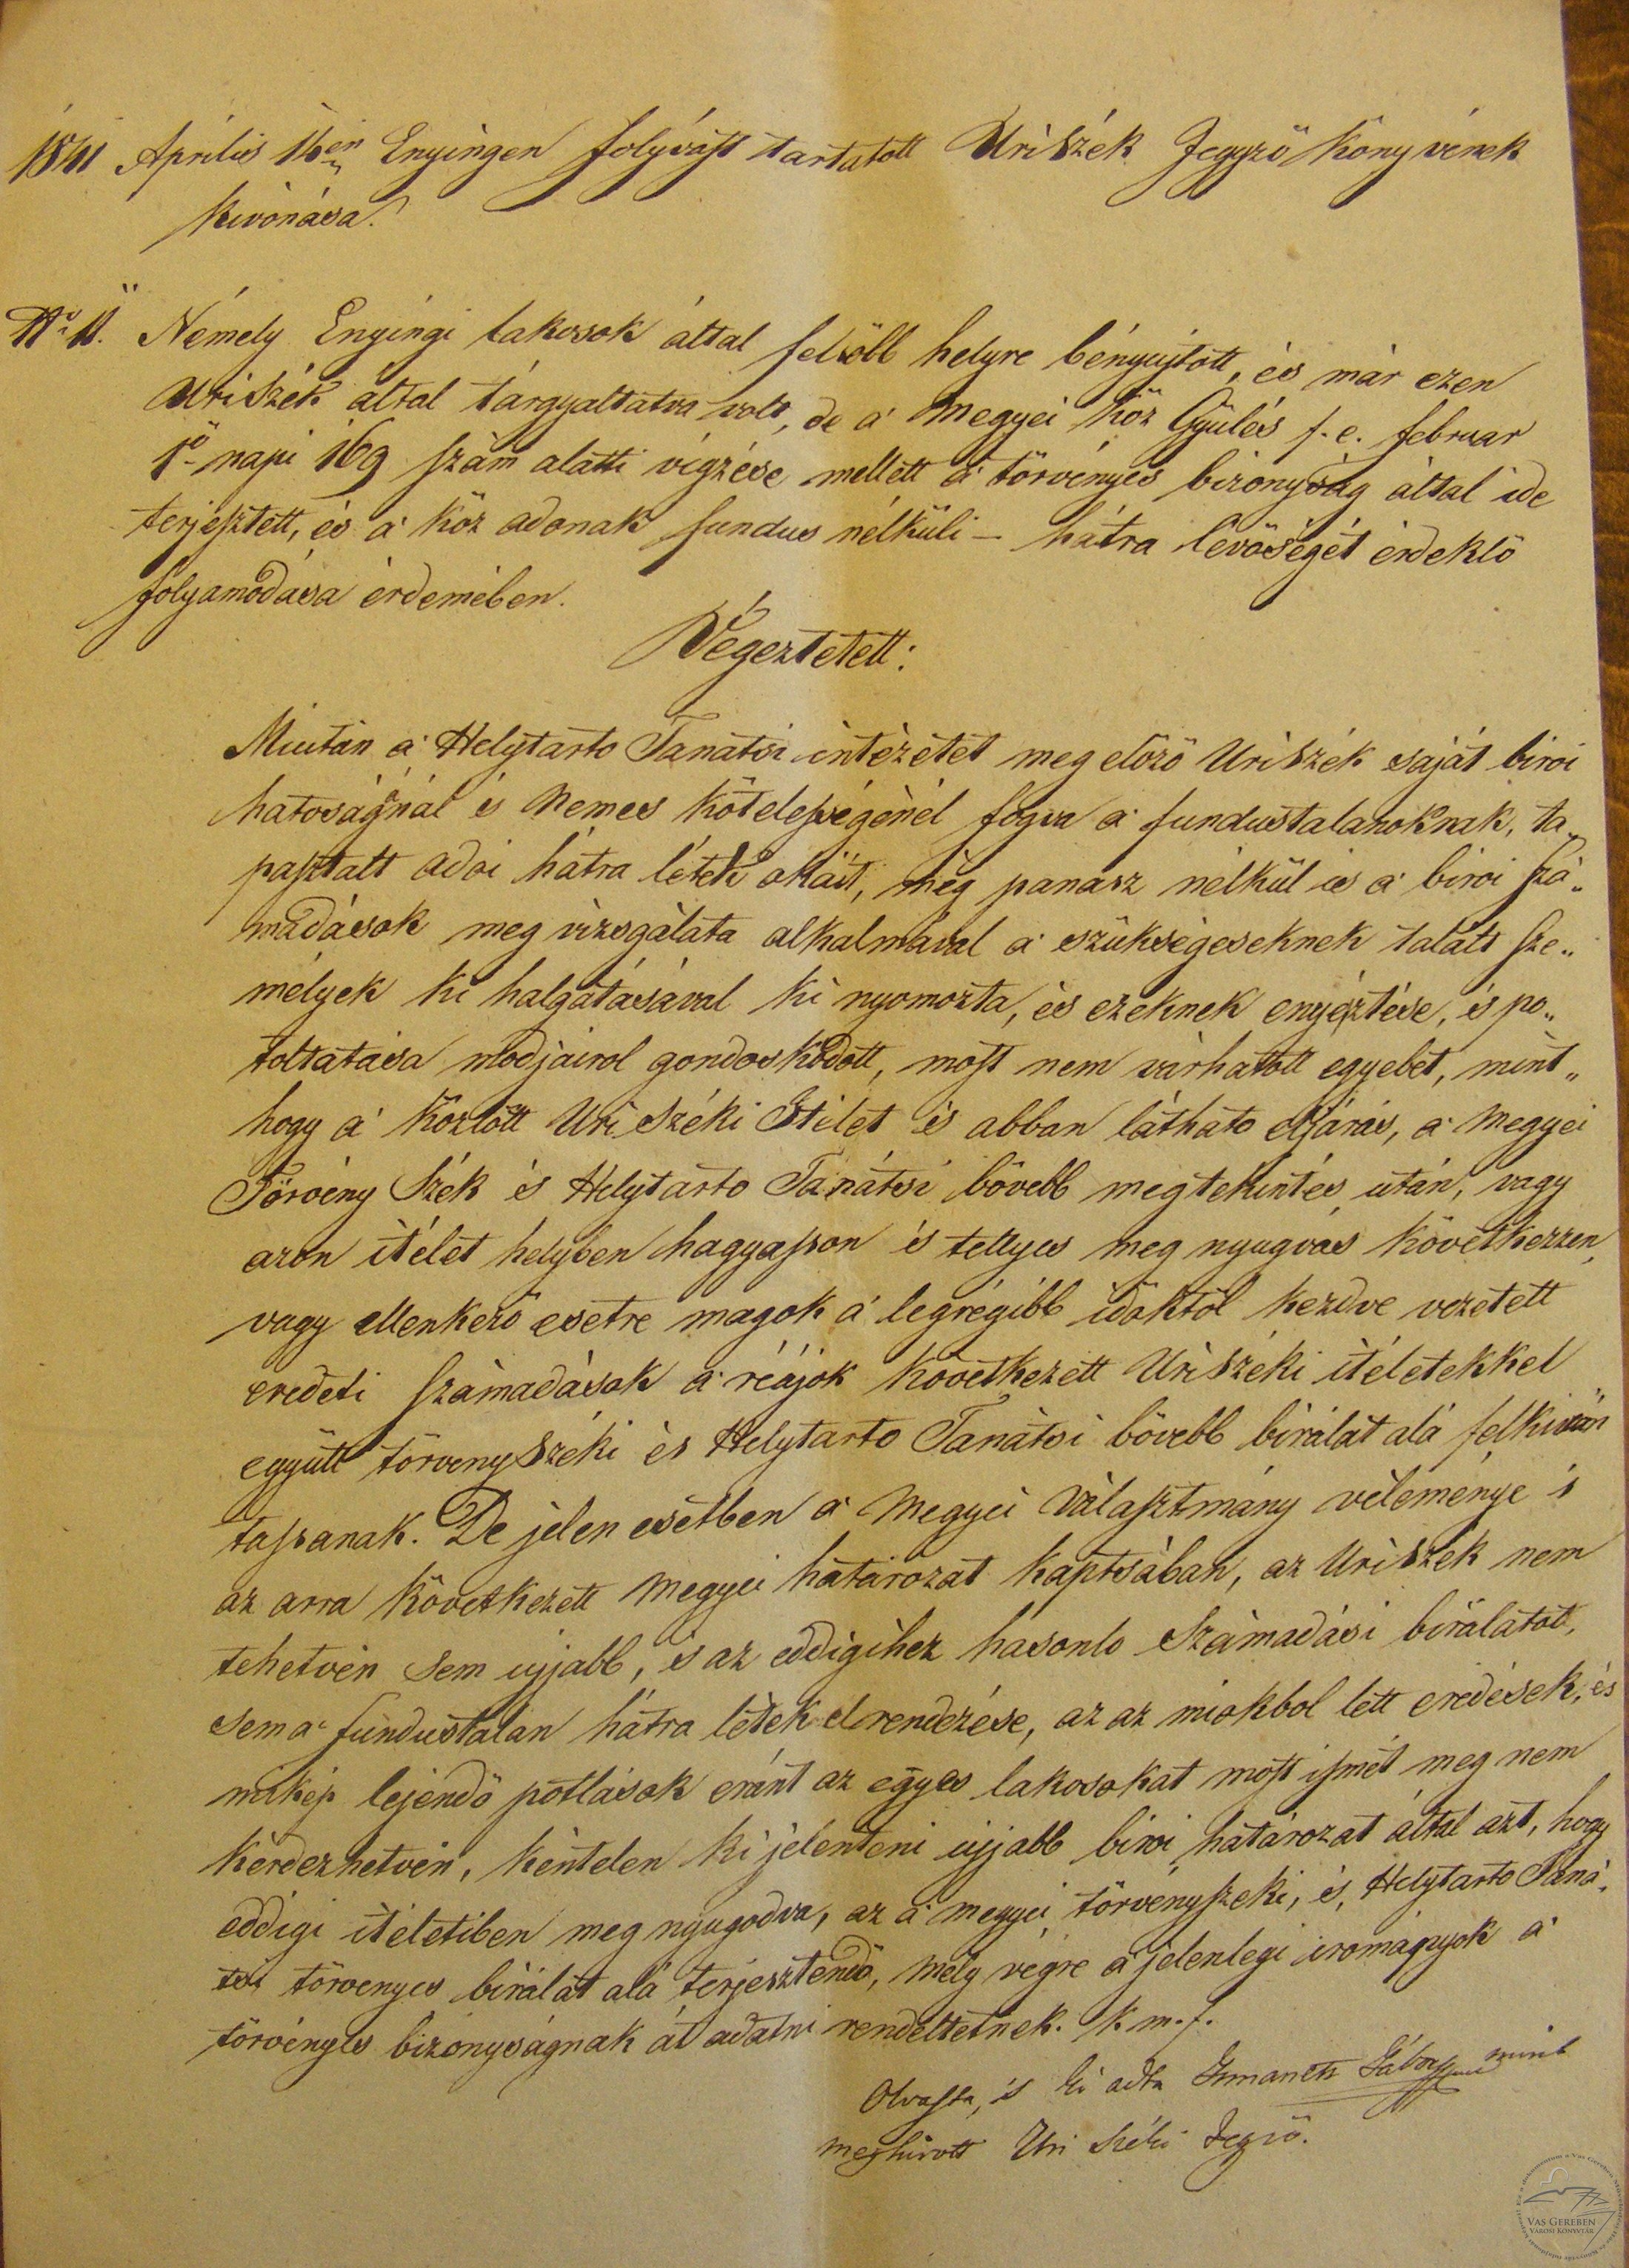 1841 Április 16án Enyingen folyvást tartatott Úriszék Jegyző könyvének
kivonása.
No 11. Némely Enyingi lakosok által felsőbb helyre bényujtott, és már ezen
Uriszék által tárgyaltatva volt, de a' Megyei köz Gyülés f. e. februar
1ő napi 169 szám alatti végzése mellett a' törvényes bizonyság által ide
terjesztett, és a' köz adonak fundus nélküli – hátra lévőségét érdeklő
folyamodása érdemében.
Végeztetett:
Miután a' Helytarto Tanátsi intézetet meg előző Uriszék saját birói
hatoságánál és Nemes kötelességénél fogva a' fundustalanoknak, ta„
pasztalt adoi hátra létek okáit, még panasz nélkül is a' birói szá„
madások meg vizsgálata alkalmával a' szükségeseknek talált sze„
mélyek ki halgatásával ki nyomozta, és ezeknek enyésztése, és po„
toltatása modjairol gondoskodott, most nem várhatott egyebet, mint„
hogy a' közlött Uri Széki Itélet és abban látható eljárás, a' Megyei
Törvény Szék és Helytarto Tanátsi bővebb megtekintés után, vagy
azon itélet helyben hagyasson és tellyes meg nyugvás következzen,
vagy ellenkező esetre magok a' legrégibb időktől kezdve vezetett
eredeti számadások a' réájok következett Uriszéki itéletekkel
együtt törvényszéki és Helytarto Tanátsi bővebb birálat alá felkiván
tassanak. De jelen esetben a' Megyei Választmány véleménye és
az arra következett Megyei határozat kaptsában, az Uriszék nem
tehetvén sem ujjabb, és az eddigihez hasonlo Számadási birálatot,
sem a' fundustalan hátra létek elrendezése, az az miokbol lett eredések, és
mikép lejendő pótlások eránt az egyes lakosokat most ismét meg nem
kérdezhetvén, kéntelen ki jelenteni ujjabb birói határozat által azt, hogy
eddigi itéletiben meg nyugodva, az a' megyei törvényszéki, és Helytarto Taná„
tsi törvenyes birálat alá terjesztendő, mely végre a' jelenlegi irományok a'
törvényes bizonyságnak át adatni rendeltetnek. k. m. f.
Olvasta, és ki adta Gábor mint
meghivott Uri Széki Jegyző.
VAS GEREBEN
VÁROSI KÖNYVTÁR